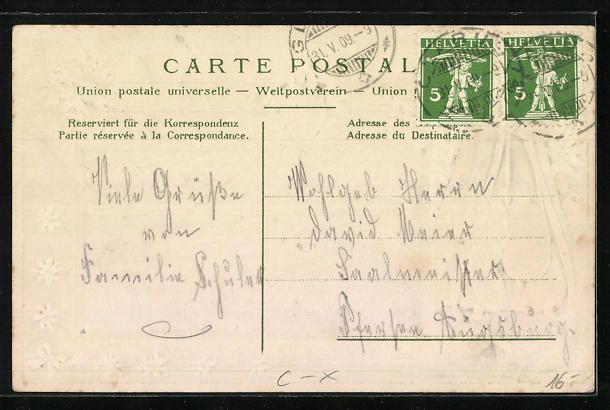 CARTE POSTAL
Union postale universelle — Weltpostverein — Union
Reserviert für die Korrespondenz
Partie réservée à la Correspondance.
Adresse des
Adresse du Destinataire.
HELVETIA
5
HELVETIA
5
31.V.09.-9
Viele Grüße
von
Familie Schuler
Wohlgeb Herrn
David Meier
Saalmeister
Pfersee Augsburg.
C-X
16.-